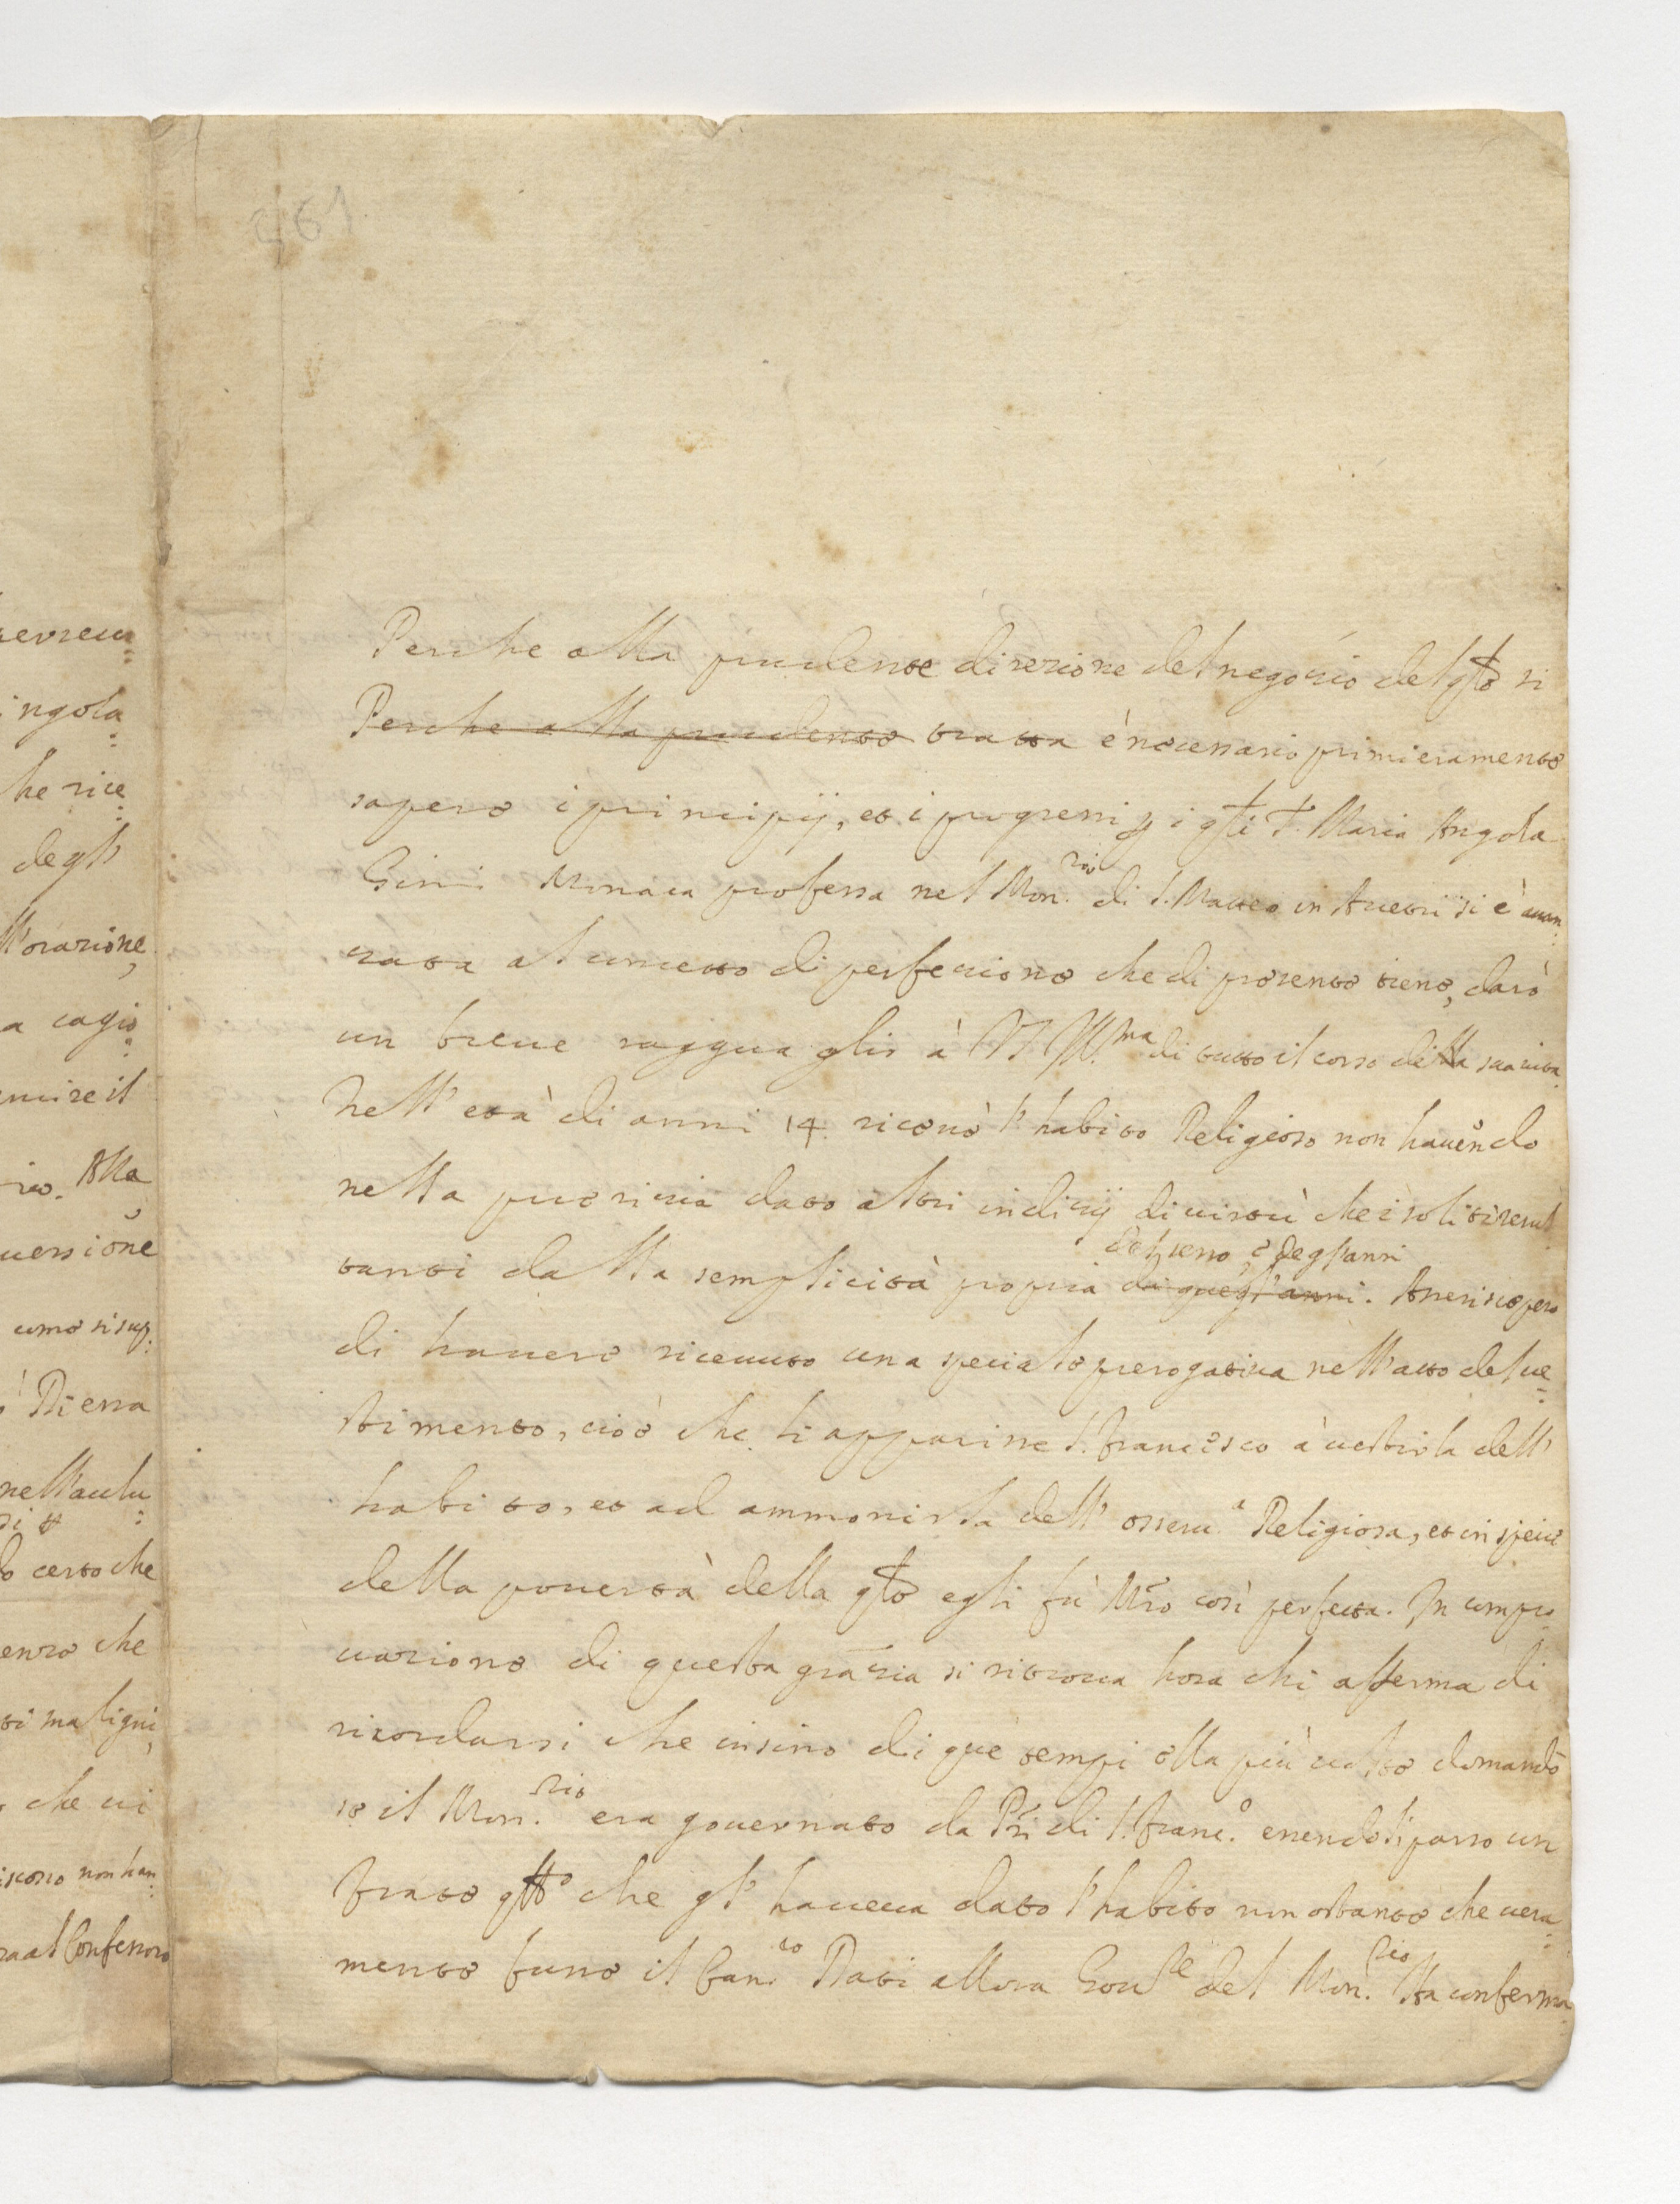 261
Perche alla prudente direzione del negozio del qle si
Perche alla prudente tratta è necessario primieramente
sapere i principij, et i progressi p i qli S. Maria Angola
Gini Monaca professa nel Mon.rio di S. Matteo in Arcetri si è avan:
zata al concetto di perfezione che di presente tiene, darò
un breve ragguaglio à V.S. Ill.ma di tutto il corso della sua vita.
Nell' età di anni 14 ricevè l' habito Religioso non havendo
nella puerizia dato altri indizij di virtù che i soliti resul
tanti dalla semplicità propria di quegl' anni. Asserisce però
del sesso, e degl' anni
di havere ricevuto una speciale prerogativa nell' atto del ve:
stimento, cioè che li apparisse S. Francesco à vestirla dell'
habito, et ad ammonirla dell' osserv.a Religiosa, et in specie
della povertà della qle egli fù Mro così perfetto. In compro:
vazione di questa grazia si ritrova hora chi afferma di
ricordarsi che insino di que tempi ella più volte domandò
se il Mon.rio era governato da Pri di S. Franc.o essendoli parso un
frate qllo che gl' haveva dato l' habito non ostante che vera:
mente fusse il Can.co Dati allora Gov.re del Mon.rio Ha conferma
verseu:
ingola:
he rice:
degl'
ll' orazione,
a cagio:
mire il
rio. Alla
versione
come si sup:
Di essa
nell' aulu:
certo che
enza che
ti maligni,
che vi
iscono non han:
ra al Confessoro